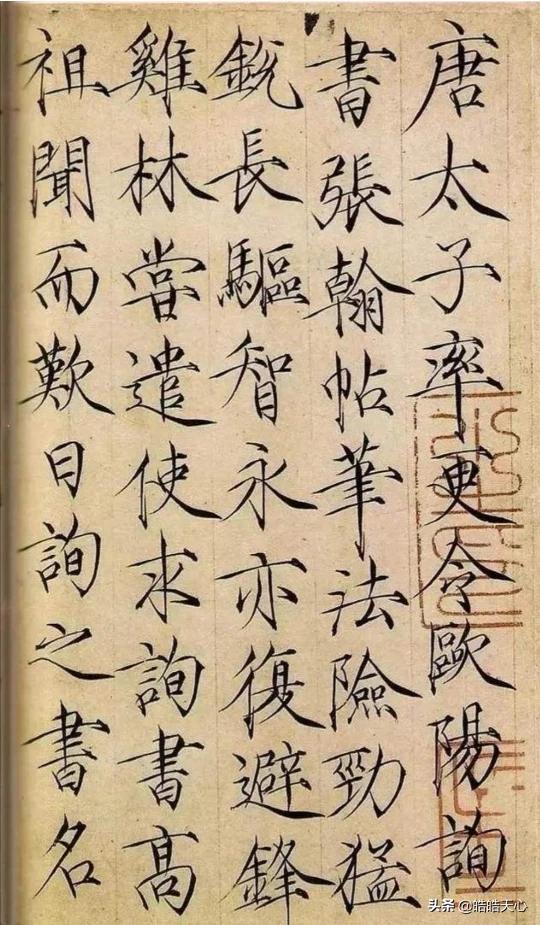 唐太子率更令歐陽詢
書張翰帖筆法險勁猛
銳長驅智永亦復避鋒
雞林嘗遣使求詢書高
祖聞而歎曰詢之書名
头条 @皓皓天心